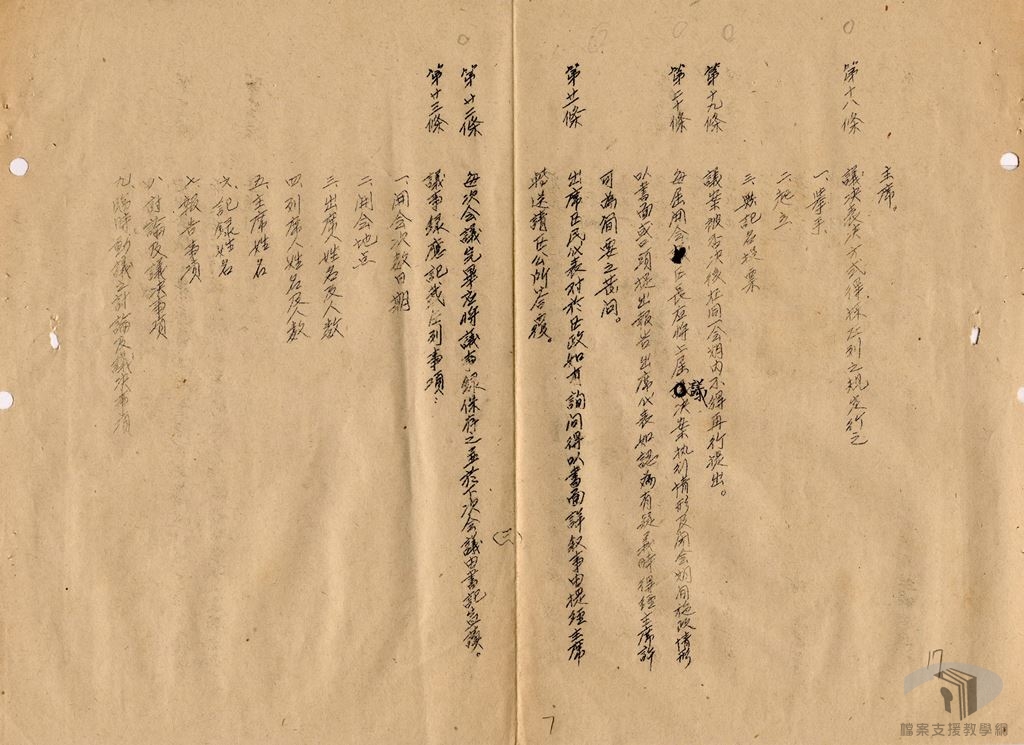 主席。
第十八條 議決表決方式得採左列之規定行之
一、舉手
二、起立
三、無記名投票
第十九條 議案被否決後在同一会期内不得再行提出。
第二十條 每屆開会区長应將上屆議決案执行情形及閉会期间施政情形
以書面或口頭提出報告出席代表如認為有疑義時得經主席許
可為簡要之詰问。
第廿一條 出席区民代表对於区政如有詢问得以書面詳敘事由提經主席
轉送請区公所答覆。
第廿二條 每次会議完畢应將議事錄保存之並於下次会議由書記宣讀。
第廿三條 議事錄應記載左列事項：
一、開会次数日期
二、開会地点
三、出席姓名及人数
四、列席人姓名及人数
五、主席姓名
六、記錄姓名
七、報告事項
八、討論及議决事項
九、臨時動議之討論及議决事項
(三)
7
17
檔案支援教學網